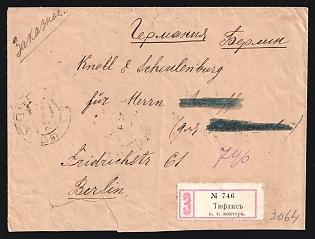 Заказное.
Германия Берлин
Knoll & Scheulenburg
für Herrn
Fridrichstr 61
746
Berlin
З
№ 746
Тифлисъ
3064